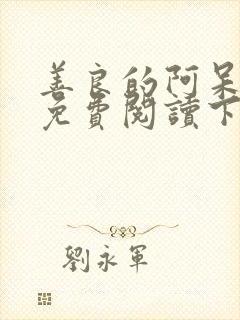 善良的阿呆
免費閱讀下
劉永軍